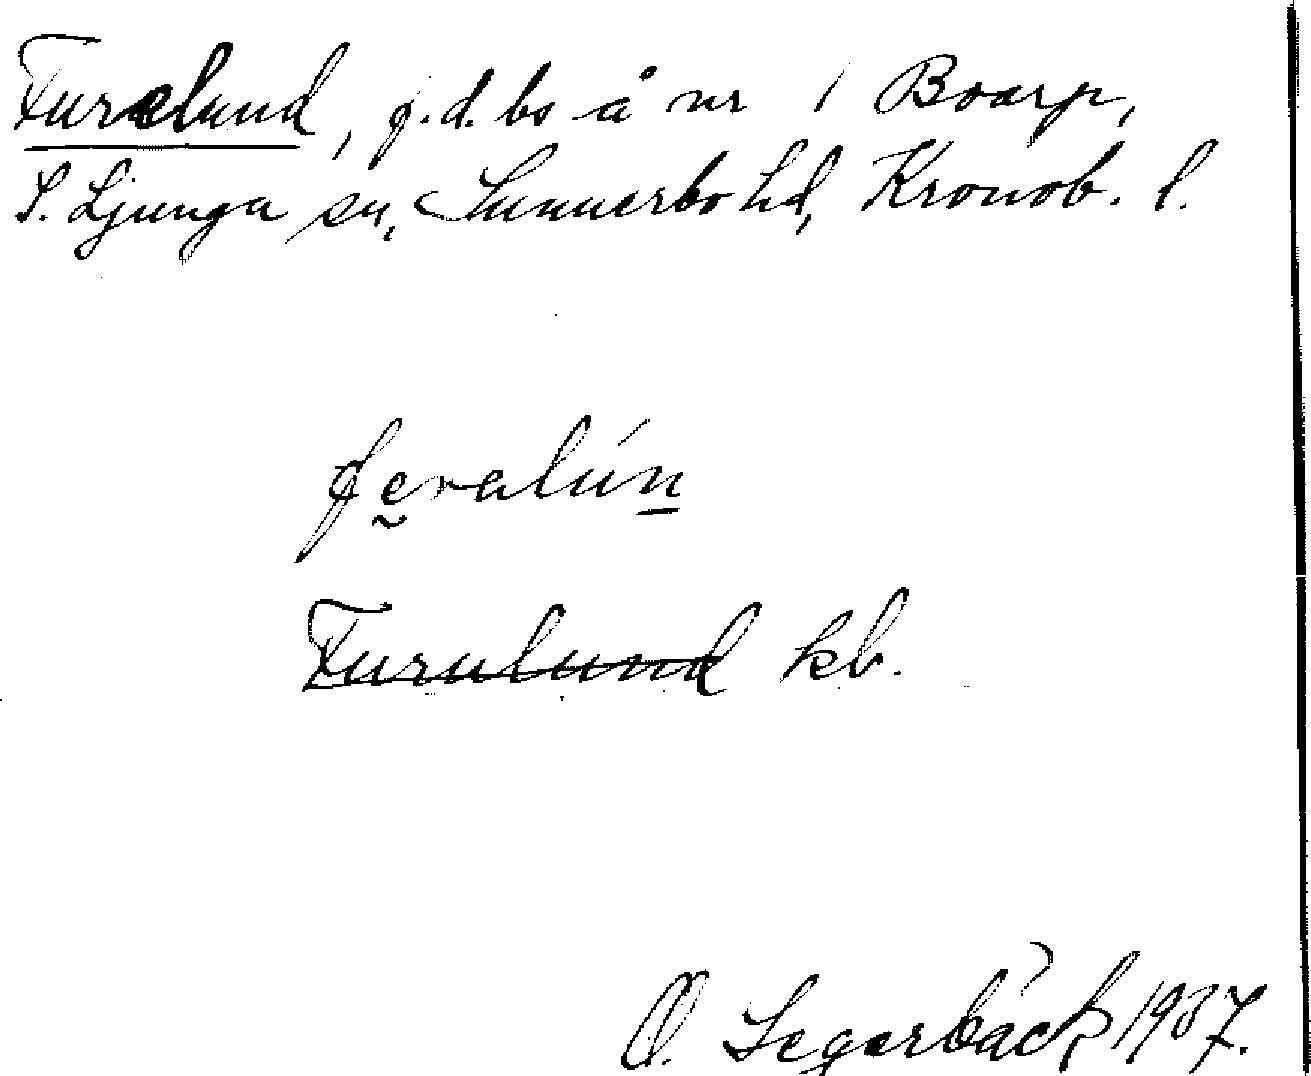 Furelund, f.d. bs å nr 1 Boarp,
S. Ljunga sn, Sunnerbo hd, Kronob. l.
feralún
Furulund kb.
O. Segerbäck 1937.